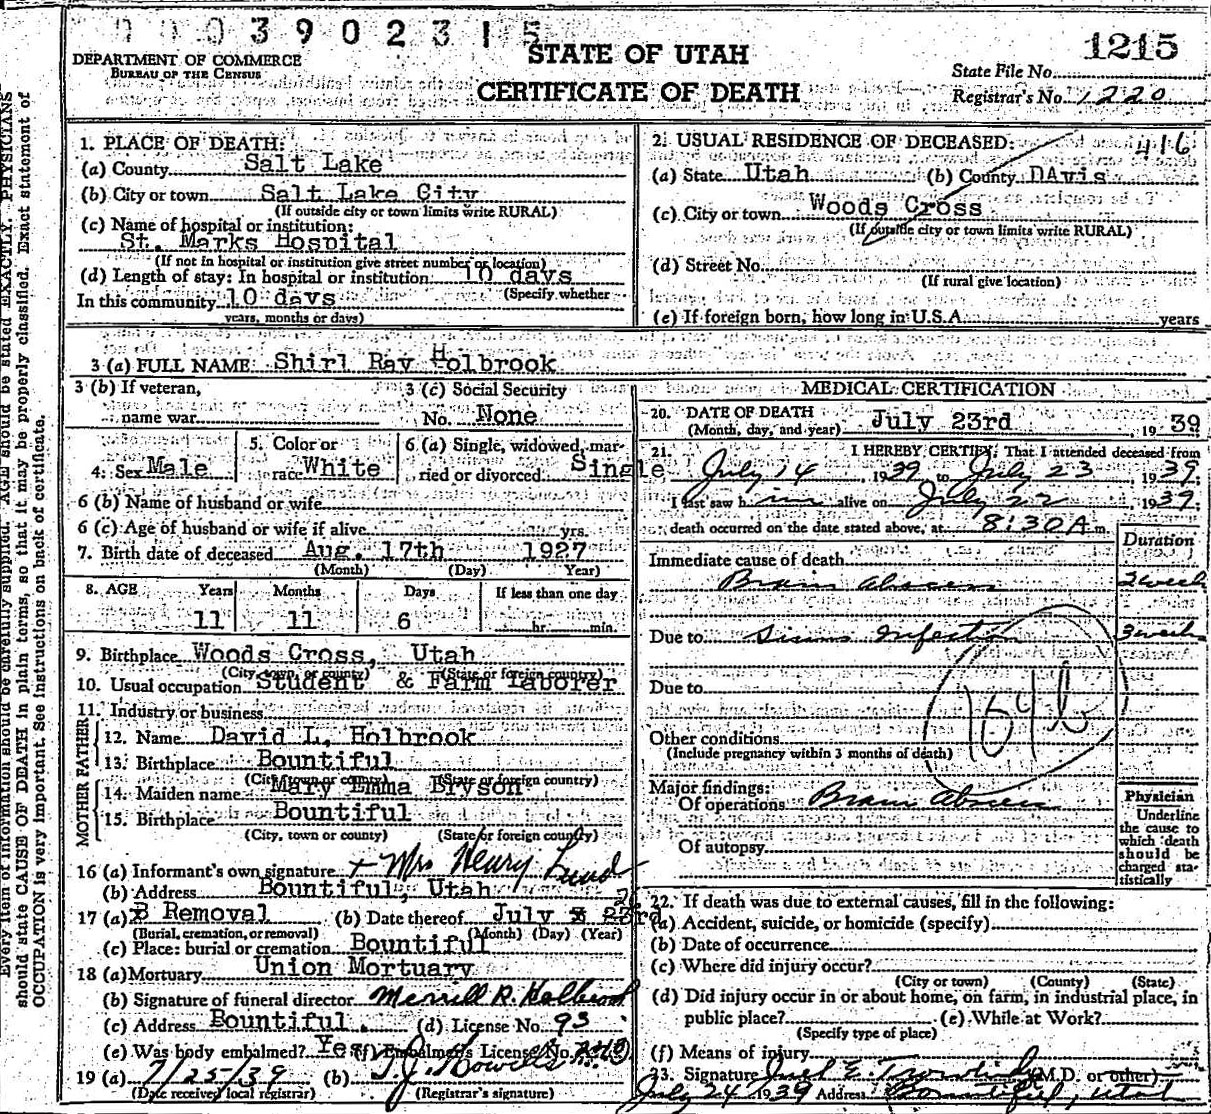 0003902315
1215
DEPARTMENT OF COMMERCE
BUREAU OF THE CENSUS
STATE OF UTAH
CERTIFICATE OF DEATH
State File No.
Registrar's No. 1220
Every item of information should be carefully supplied. AGE should be stated EXACTLY. PHYSICIANS
should state CAUSE OF DEATH in plain terms, so that it may be properly classified. Exact statement of
OCCUPATION is very important. See instructions on back of certificate.
1. PLACE OF DEATH:
(a) County Salt Lake
(b) City or town Salt Lake City
(If outside city or town limits write RURAL)
(c) Name of hospital or institution:
St. Marks Hospital
(If not in hospital or institution give street number or location)
(d) Length of stay: In hospital or institution 10 days
(Specify whether
In this community 10 days
years, months or days)
2. USUAL RESIDENCE OF DECEASED: 416
(a) State Utah (b) County DAvis
(c) City or town Woods Cross
(If outside city or town limits write RURAL)
(d) Street No.
(If rural give location)
(e) If foreign born, how long in U.S.A. years
3 (a) FULL NAME Shirl Ray Holbrook
3 (b) If veteran,
name war
3 (c) Social Security
No. None
4. Sex Male
5. Color or
race White
6 (a) Single, widowed, mar-
ried or divorced Single
6 (b) Name of husband or wife
6 (c) Age of husband or wife if alive yrs.
7. Birth date of deceased Aug. 17th 1927
(Month) (Day) Year)
8. AGE Years Months Days If less than one day
11 11 6 hr. min.
9. Birthplace Woods Cross, Utah
(City, town, or county) (State or foreign country)
10. Usual occupation Student & Farm Laborer
11. Industry or business
FATHER
12. Name David L. Holbrook
13. Birthplace Bountiful
(City, town or county) (State or foreign country)
MOTHER
14. Maiden name Mary Emma Bryson
15. Birthplace Bountiful
(City, town or county) (State or foreign country)
16 (a) Informant's own signature + Mrs Henry Lund
(b) Address Bountiful, Utah
17 (a) B Removal (b) Date thereof July 23rd
(Burial, cremation, or removal) (Month) (Day) (Year)
(c) Place: burial or cremation Bountiful
18 (a) Mortuary Union Mortuary
(b) Signature of funeral director Merrill R. Holbrook
(c) Address Bountiful. (d) License No. 93
(e) Was body embalmed? Yes (f) Embalmer's License No.
19 (a) 7/25/39 (b) T.J. Howells
(Date received local registrar) (Registrar's signature)
MEDICAL CERTIFICATION
20. DATE OF DEATH July 23rd, 1939
(Month, day, and year)
21. I HEREBY CERTIFY, That I attended deceased from
July 14, 1939 to July 23, 1939.
I last saw him alive on July 22, 1939.
death occurred on the date stated above, at 8:30 A m.
Duration
Immediate cause of death
Brain Abscess 2 week
Due to Sinus Infection 3 week
Due to
164b
Other conditions
(Include pregnancy within 3 months of death)
Major findings:
Of operations Brain Abscess
Of autopsy
Physician
Underline
the cause to
which death
should be
charged sta-
tistically
22. If death was due to external causes, fill in the following:
(a) Accident, suicide, or homicide (specify)
(b) Date of occurrence
(c) Where did injury occur?
(City or town) (County) (State)
(d) Did injury occur in or about home, on farm, in industrial place, in
public place? (e) While at Work?
(Specify type of place)
(f) Means of injury
23. Signature (M.D. or other)
July 24 1939 Address Bountiful, Utah